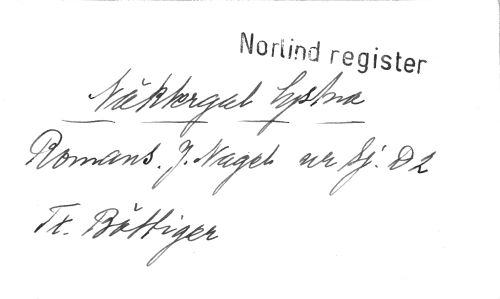 Norlind register
Näktergal lystna
Romans. J. Nagel ur Sj. D2
Tx. Böttiger